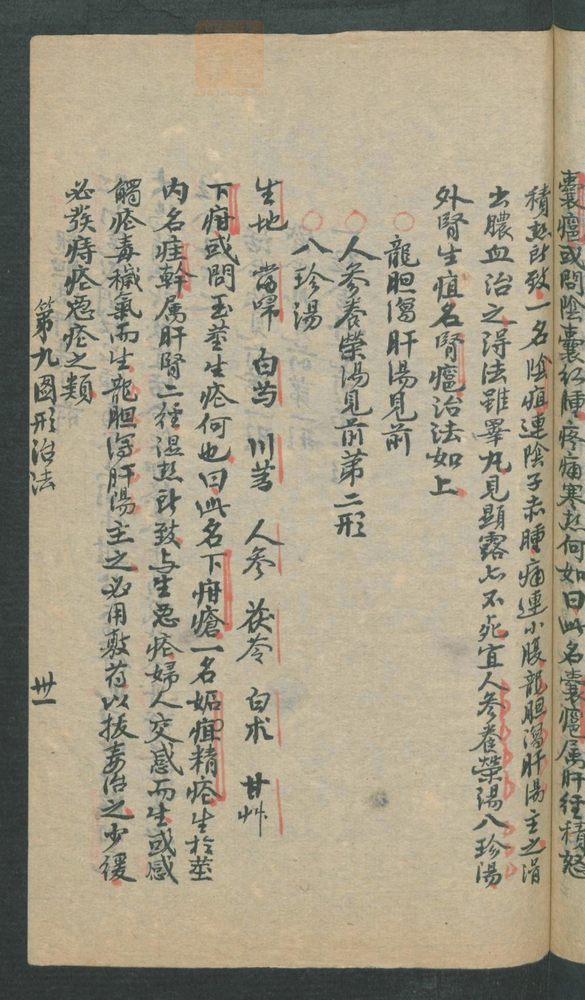 囊癰或問陰囊紅腫疼痛寒熱何如曰此名囊癰属肝经積怒
積熱所致一名陰疽連陰子赤腫痛連小腹龍胆瀉肝湯主之潰
出膿血治之得法雖睪丸見顕露亦不死宜人参養榮湯八珍湯
外腎生疽名腎癰治法如上
○龍胆瀉肝湯見前
○人参養榮湯見前第二形
○八珍湯
生地 當歸 白芍 川芎 人参 茯苓 白朮 甘艸
下疳或問玉莖生疮何也曰此名下疳瘡一名妬疽精疮生於莖
内名疰幹属肝腎二徑湿熱所致与生恶疮婦人交感而生或感
觸疮毒穢氣而生龍胆瀉肝湯主之必用敷药以拔毒治之少緩
必發痔疮恶疮之類
第九圖形治法 卅一